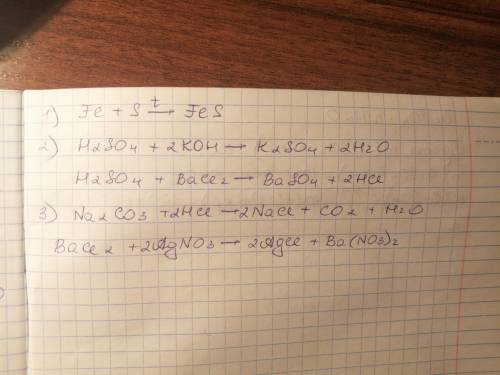 1) Fe + S t→ FeS
2) H2SO4 + 2KOH → K2SO4 + 2H2O
H2SO4 + BaCl2 → BaSO4 + 2HCl
3) Na2CO3 + 2HCl → 2NaCl + CO2 + H2O
BaCl2 + 2AgNO3 → 2AgCl + Ba(NO3)2